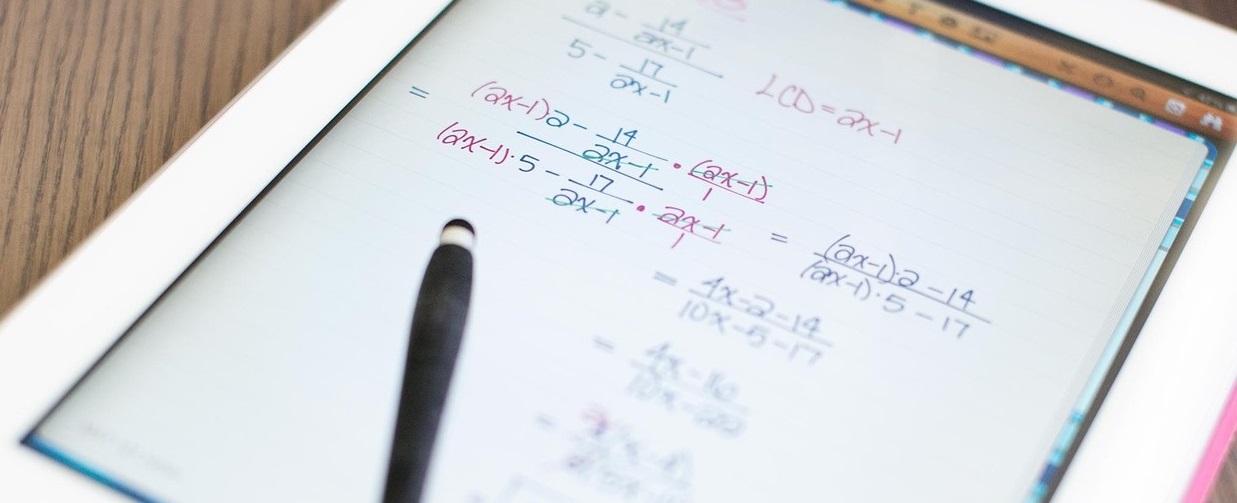 2 - 14/(2x-1)
5 - 17/(2x-1)
LCD = 2x-1
= (2x-1)2 - 14/(2x-1) · (2x-1)/1
(2x-1)·5 - 17/(2x-1) · 2x-1/1
= (2x-1)·2 - 14
(2x-1)·5 - 17
= 4x-2-14
10x-5-17
= 4x-16
10x-22